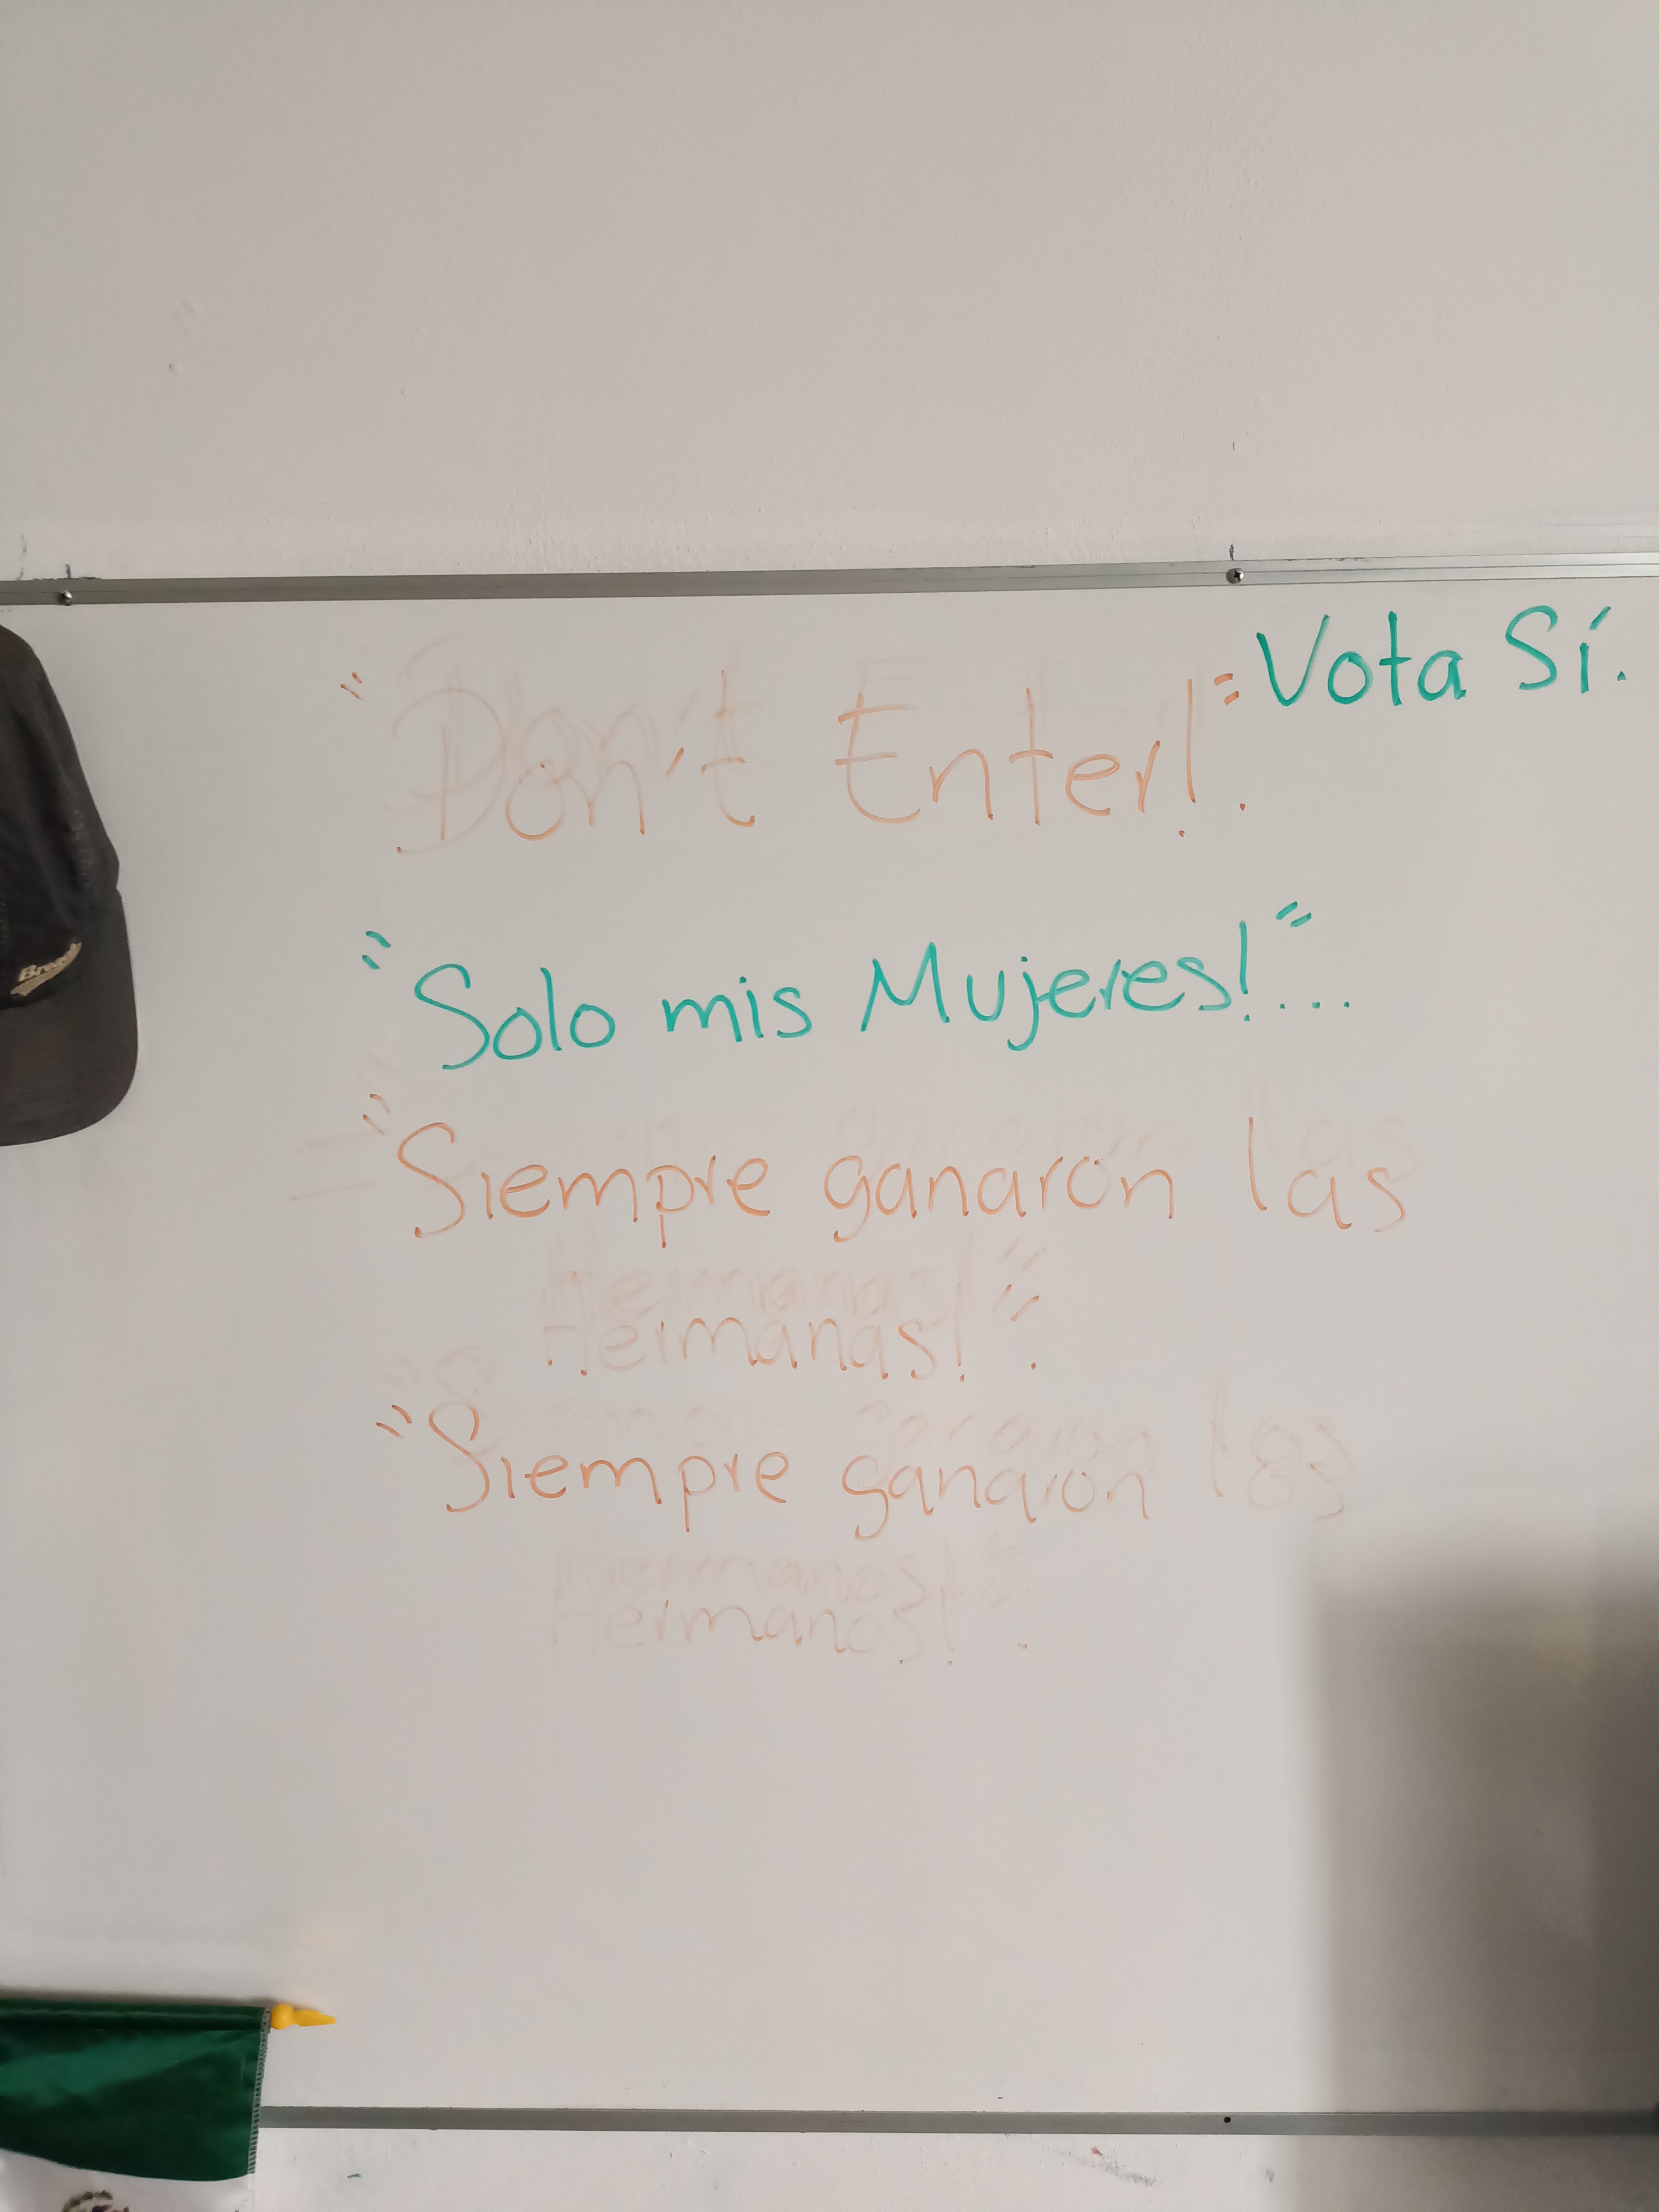 "Don't Enter!". Vota Sí.
"Solo mis Mujeres!"...
"Siempre ganaron las
Hermanas!".
"Siempre ganaron los
Hermanos!".